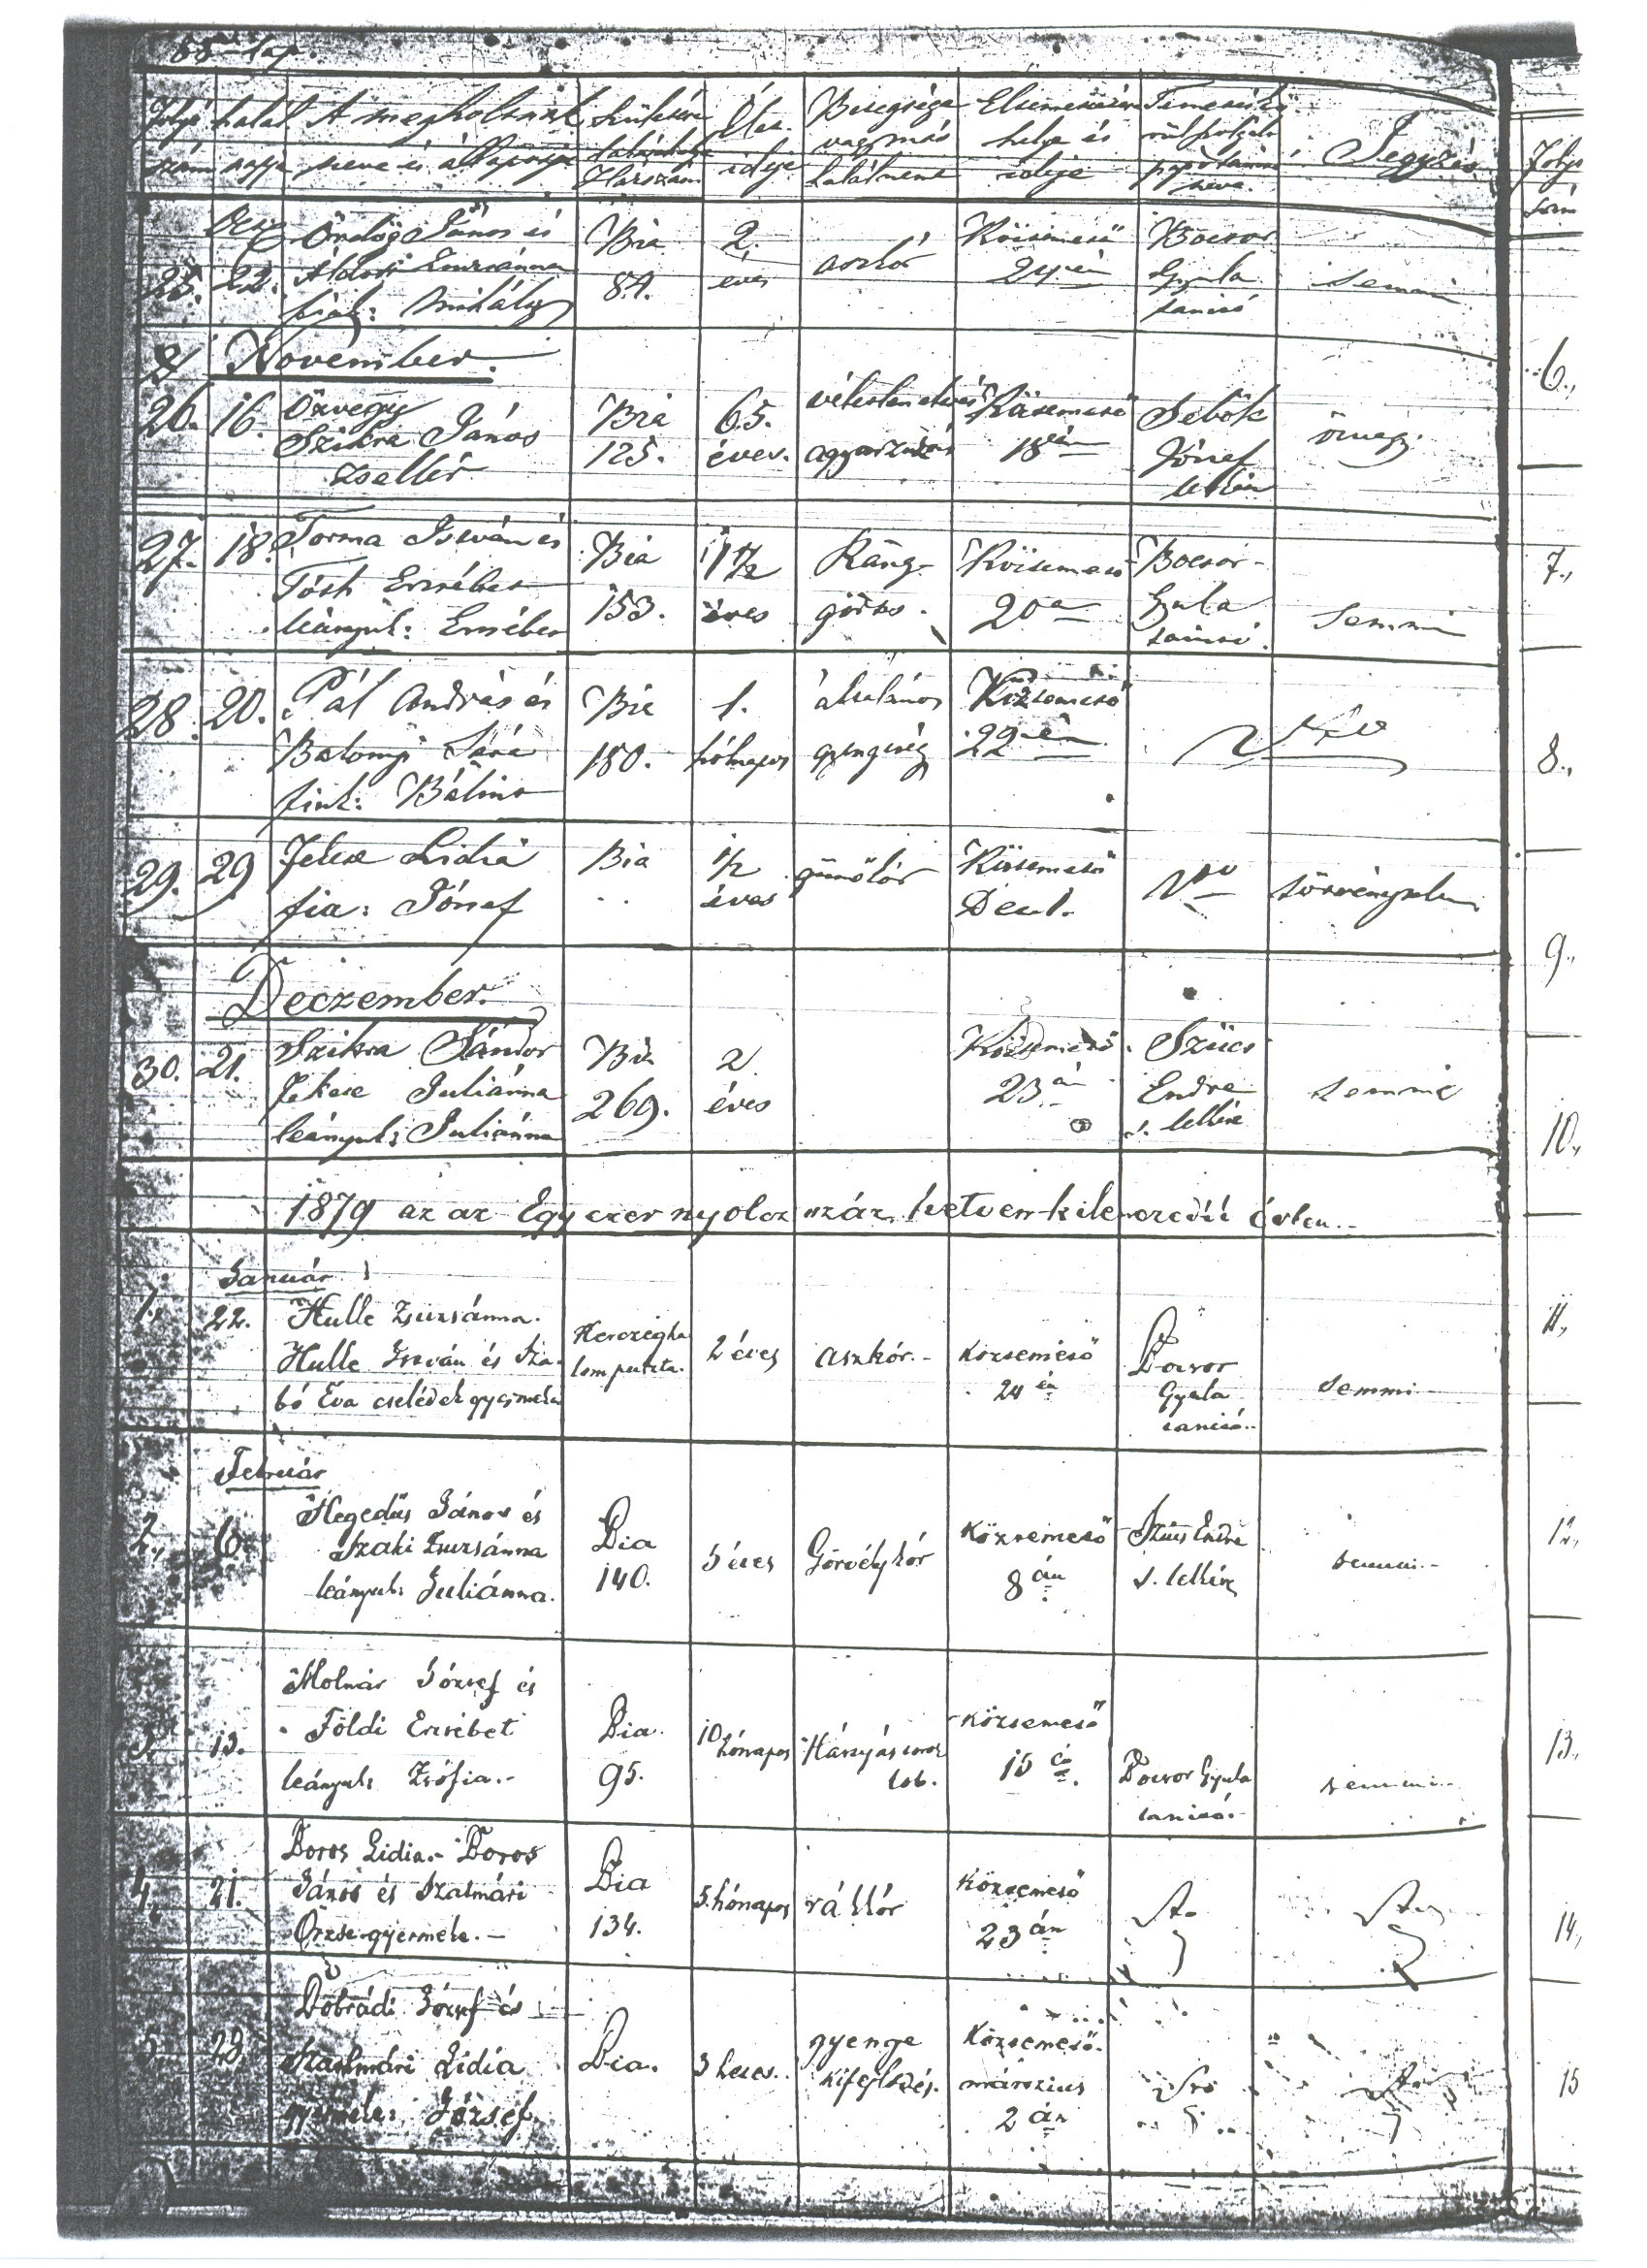 88 lap.
Folyó szám
halál napja
A megholtnak neve és állapotja
Születési
Házszám
Élet ideje
Betegsége vagy más halálneme
Eltemetésének helye és ideje
Temetési szolgálatot
neve.
Jegyzés.
25. 22. Ördög János és
Zsuzsánna
fiok: Mihály
Bia
84.
2.
éves
aszkór
Köztemető
24 én
Bocsor
Gyula
tanító
semmi
November.
26. 16. Özvegy
Szikra János
zsellér
Bia
125.
65.
éves.
véletlen
Köztemető
18 án
Sebők
József
lelkész
özvegy
27. 18. Torma István és
Tóth Erzsébet
leányuk: Erzsébet
Bia
153.
1 1/2
éves
Ránggörcs.
Köztemető
20 án
Bocsor
Gyula
tanító.
semmi
28. 20. Pál András és
Batonyi Sára
fiuk: Bálint
Bia
180.
1.
hónapos
általános
gyengeség
Köztemető
22 én
29. 29 Fekete Lidia
fia: József
Bia
1/2
éves
gümőkór
Köztemető
Dec 1.
törvénytelen
Deczember.
30. 21. Szikra Sándor
Fekete Juliánna
leányuk: Juliánna
Bia
269.
2.
éves
Köztemető
23 án
Szücs
Endre
s. lelkész
semmi
1879 az az Egyezer nyolcz száz hetven-kilenczedik évben.
Január
1., 22. Hulle Zsuzsánna.
Hulle István és Szabó Éva cselédek gyermeke
Herczeghalom puszta.
2 éves
aszkór.
köztemető
24 én
Bocsor
Gyula
tanító.
semmi
Február
2., 6. Hegedűs János és
Szaki Zsuzsánna
leányuk: Juliánna.
Bia
140.
5 éves
Görvélykór
Köztemető
8 án
Szücs Endre
s. lelkész
semmi.
3. 13. Molnár József és
Földi Erzsébet
leányuk Zsófia.
Bia.
95.
10 hónapos
Hártyás torok
lob.
Köztemető
15 én.
Bocsor Gyula
tanító.
semmi.
4. 21. Boros Lidia. Boros
János és Szatmári
Örzse gyermeke.
Bia
134.
5. hónapos
ráklór
Köztemető
23 án
5. 29. Dobrádi József és
Szatmári Lidia
gyermeke: József.
Bia.
3 hetes.
gyenge
kifejlődés.
Köztemető.
márczius
2 án
Folyó szám
6.,
7.,
8.,
9.,
10.,
11.,
12.,
13.,
14.,
15